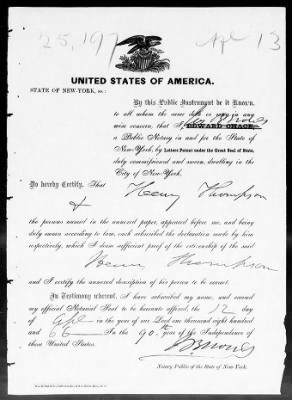 25,197 Apl 13
UNITED STATES OF AMERICA.
STATE OF NEW-YORK, ss.:
By this Public Instrument be it known,
to all whom the same doth or may in any
wise concern, that I, EDWARD CHACE,
a Public Notary in and for the State of
New-York, by Letters Patent under the Great Seal of State,
duly commissioned and sworn, dwelling in the
City of New-York.
Do hereby Certify, That Henry Thompson
&
the persons named in the annexed paper, appeared before me, and being
duly sworn according to law, each subscribed the declaration made by him
respectively, which I deem sufficient proof of the citizenship of the said
Henry Thompson
and I certify the annexed description of his person to be correct.
In Testimony whereof, I have subscribed my name, and caused
my official Notarial Seal to be hereunto affixed, the 12 day
of Apl in the year of our Lord one thousand eight hundred
and 66 In the 90th year of the Independence of
these United States.
Notary Public of the State of New York.